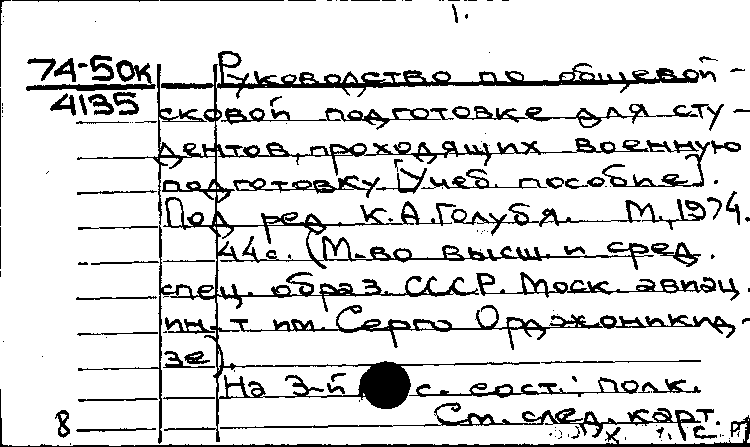 1.
74-50к Руководство по общевой-
4135 сковой подготовке для сту-
дентов, проходящих военную
подготовку. [Учеб. пособие].
Под ред. К.А.Голубя. М., 1974.
44с. (М-во высш. и сред.
спец. образ. СССР. Моск. авиац.
ин-т им. Серго Орджоникид-
зе).
На 3-й с. сост.: полк.
8 См. след. карт.